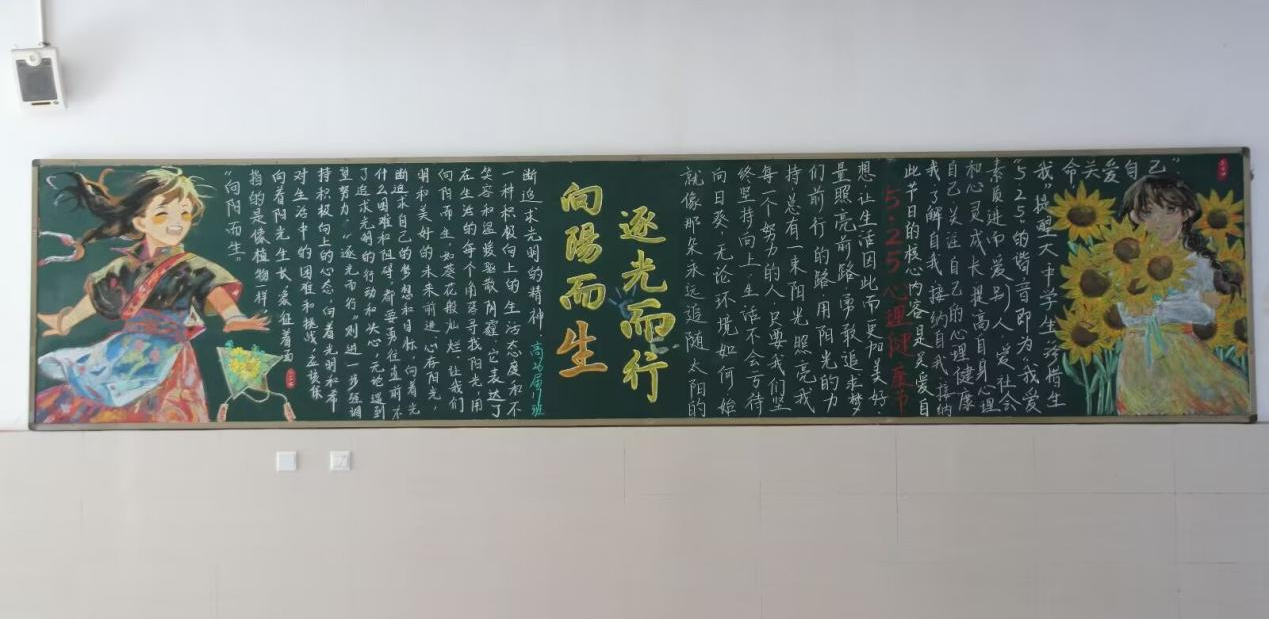 “向阳而生”
指的是像植物一样
向着阳光生长,象征着面
对生活中的困难和挑战,应该保
持积极向上的心态,向着光明和希
望努力。“逐光而行”则进一步强调
了追求光明的行动和决心,无论遇到
什么困难和阻碍,都要勇往直前,不
断追求自己的梦想和目标,向着光
明和美好的未来前进。心存阳光,
向阳而生,如葵花般灿烂,让我们
在生活的每个角落寻找阳光,用
笑容和温暖驱散阴霾,它表达了
一种积极向上的生活态度和不
断追求光明的精神
向陽而生
逐光而行
就像那朵永远追随太阳的
向日葵,无论环境如何,始
终坚持向上,生活不会亏待
每一个努力的人,只要我们坚
持,总有一束阳光照亮我
们前行的路,用阳光的力
量照亮前路,勇敢追求梦
想,让生活因此而更加美好。
5·25心理健康节
此节日的核心内容是关爱自
我,了解自我,接纳自我,接纳
自己,关注自己的心理健康
和心灵成长,提高自身心理
素质,进而爱别人,爱社会
“525”的谐音即为“我爱
我”,提醒大中学生“珍惜生
命关爱自己。”